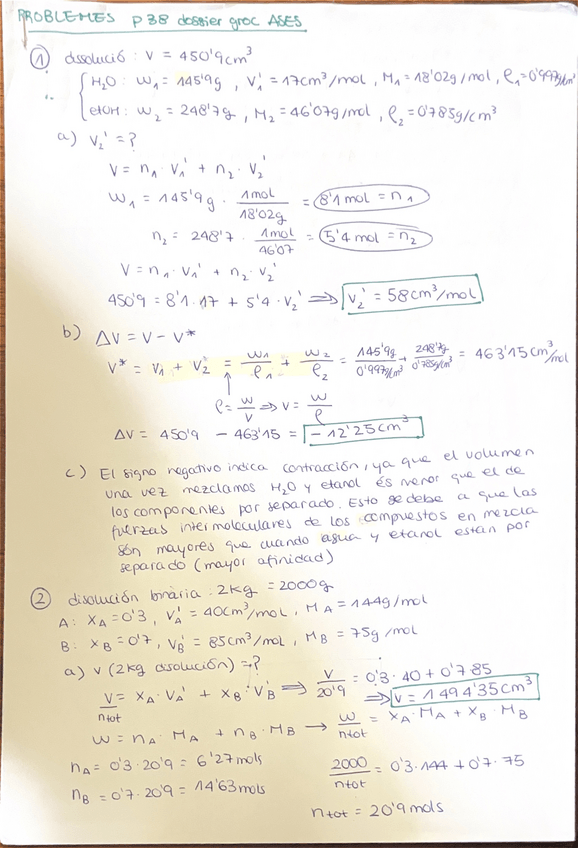 PROBLEMES p 38 dossier groc ASES
① dissolució: V = 450'9cm³
H₂O: W₁ = 145'9g, V₁' = 17cm³/mol, M₁ = 18'02g/mol, ρ₁=0'997g/cm³
etOH: W₂ = 248'7g, M₂ = 46'07g/mol, ρ₂ = 0'785g/cm³
a) V₂' = ?
V = n₁ · V₁' + n₂ · V₂'
W₁ = 145'9g · 1mol/18'02g = 8'1 mol = n₁
n₂ = 248'7 · 1mol/46'07 = 5'4 mol = n₂
V = n₁ · V₁' + n₂ · V₂'
450'9 = 8'1·17 + 5'4 · V₂' ⇒ V₂' = 58cm³/mol
b) ΔV = V - V*
V* = V₁ + V₂ = W₁/ρ₁ + W₂/ρ₂ = 145'9g/0'997g/cm³ + 248'7g/0'785g/cm³ = 463'15cm³/mol
ρ = W/V ⇒ V = W/ρ
ΔV = 450'9 - 463'15 = -12'25cm³
c) El signo negativo indica contracción, ya que el volumen
una vez mezclamos H₂O y etanol és menor que el de
los componentes por separado. Esto se debe a que las
fuerzas intermoleculares de los compuestos en mezcla
són mayores que cuando agua y etanol están por
separado (mayor afinidad)
② disolución binaria: 2kg = 2000g
A: XA = 0'3, VA' = 40cm³/mol, MA = 144g/mol
B: XB = 0'7, VB' = 85cm³/mol, MB = 75g/mol
a) V (2kg disolución) = ?
V/ntot = XA · VA' + XB · VB' ⇒ V/20'9 = 0'3 · 40 + 0'7·85
⇒ V = 1494'35cm³
W = nA · MA + nB · MB → W/ntot = XA · MA + XB · MB
nA = 0'3 · 20'9 = 6'27mols
2000/ntot = 0'3·144 + 0'7·75
nB = 0'7 · 20'9 = 14'63mols
ntot = 20'9 mols